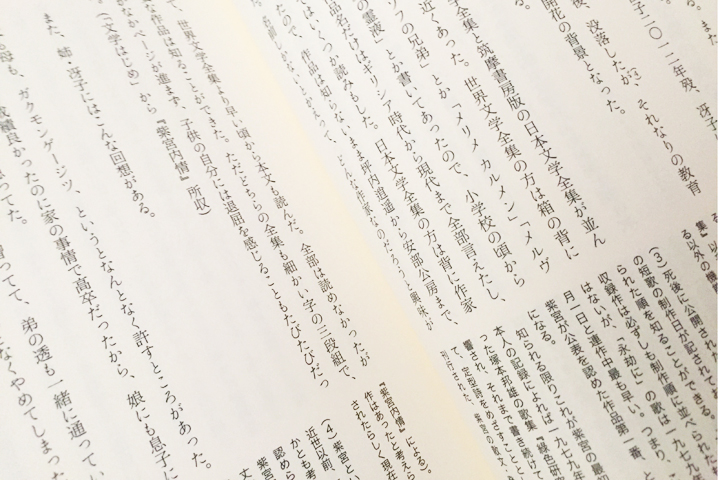 る。また
子二〇一二年歿、冴子
、没落したが、それなりの教育
開花の背景となった。
学全集と筑摩書房版の日本文学全集が並ん
近くあった。世界文学全集の方は箱の背に
フの兄弟」とか「メリメ カルメン」「メルヴ
の霊液」とか書いてあったので、小学校の頃から
品名だけはギリシア時代から現代まで全部言えたし、
はいくつか読みもした。日本文学全集の方は背に作家
たので、作品は知らないまま坪内逍遥から安部公房まで、
どんな作家なのだろうと興味が
て、世界文学全集より早い頃から本文も読んだ。全部は読めなかったが
の作品は知ることができた。ただどちらの全集も細かい字の三段組で、
かなかページが進まず、子供の自分には退屈を感じることもたびたびだっ
(「文学はじめ」から『紫宮内情』所収)
また、姉・冴子にはこんな回想がある。
母も、ガクモンゲージツ、というとなんとなく許すところがあった。
成績良かったのに家の事情で高卒だったから、娘にも息子に
思ってた。
習ってて、弟の透も一緒に通ってい
となくやめてしまった
集』以
る以外の情
(3)死後に公開された
の短歌の制作日が記されて
られた順を知ることができる。
収録作は必ずしも制作順に並べられ
はないが、「永劫に」の歌は一九七九年
月一日と連作中最も早い。つまり、
紫宮が公表を認めた作品第一番、と
になる。
知られる限りこれが紫宮の最初
本人の記録によれば一九七九年
った塚本邦雄の歌集『緑色研究
響され、それまで書き続けて
て、定型詩をめざすことと
刊行された、紫宮の散文
『紫宮内情』による。
作はあったと考えら
されたらしく現在
(4)紫宮とい
近世以前、
かとも考
認めら
紫宮